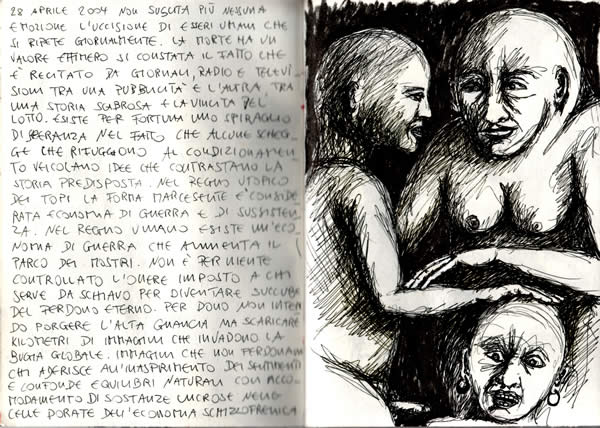 28 APRILE 2004 NON SUSCITA PIÙ NESSUNA
EMOZIONE L'UCCISIONE DI ESSERI UMANI CHE
SI RIPETE GIORNALMENTE. LA MORTE HA UN
VALORE EFFIMERO SI CONSTATA IL FATTO CHE
È RECITATO DA GIORNALI, RADIO E TELEVI
SIONI TRA UNA PUBBLICITÀ E L'ALTRA, TRA
UNA STORIA SCABROSA E LA VINCITA DEL
LOTTO. ESISTE PER FORTUNA UNO SPIRAGLIO
DI SPERANZA NEL FATTO CHE ALCUNE SCHEG-
GE CHE RIFUGGONO AL CONDIZIONAMEN
TO VEICOLANO IDEE CHE CONTRASTANO LA
STORIA PREDISPOSTA. NEL REGNO UTOPICO
DEI TOPI LA FORMA MARCESENTE È CONSIDE
RATA ECONOMIA DI GUERRA E DI SUSSISTEN
ZA. NEL REGNO UMANO ESISTE UN'ECO
NOMIA DI GUERRA CHE AUMENTA IL
PARCO DEI MOSTRI. NON È PER NIENTE
CONTROLLATO L'ONERE IMPOSTO A CHI
SERVE DA SCHIAVO PER DIVENTARE SUCCUBE
DEL PERDONO ETERNO. PER DONO NON INTEN
DO PORGERE L'ALTA GUANCIA MA SCARICARE
KILOMETRI DI IMMAGINI CHE INVADONO LA
BUCCIA GLOBALE. IMMAGINI CHE NON PERDONANO
CHI ADERISCE ALL'INASPRIMENTO DEI SENTIMENTI
E CONFONDE EQUILIBRI NATURALI CON ACCO
MODAMENTO DI SOSTANZE LUCROSE NELLE
CELLE DORATE DELL'ECONOMIA SCHIZOFRENICA